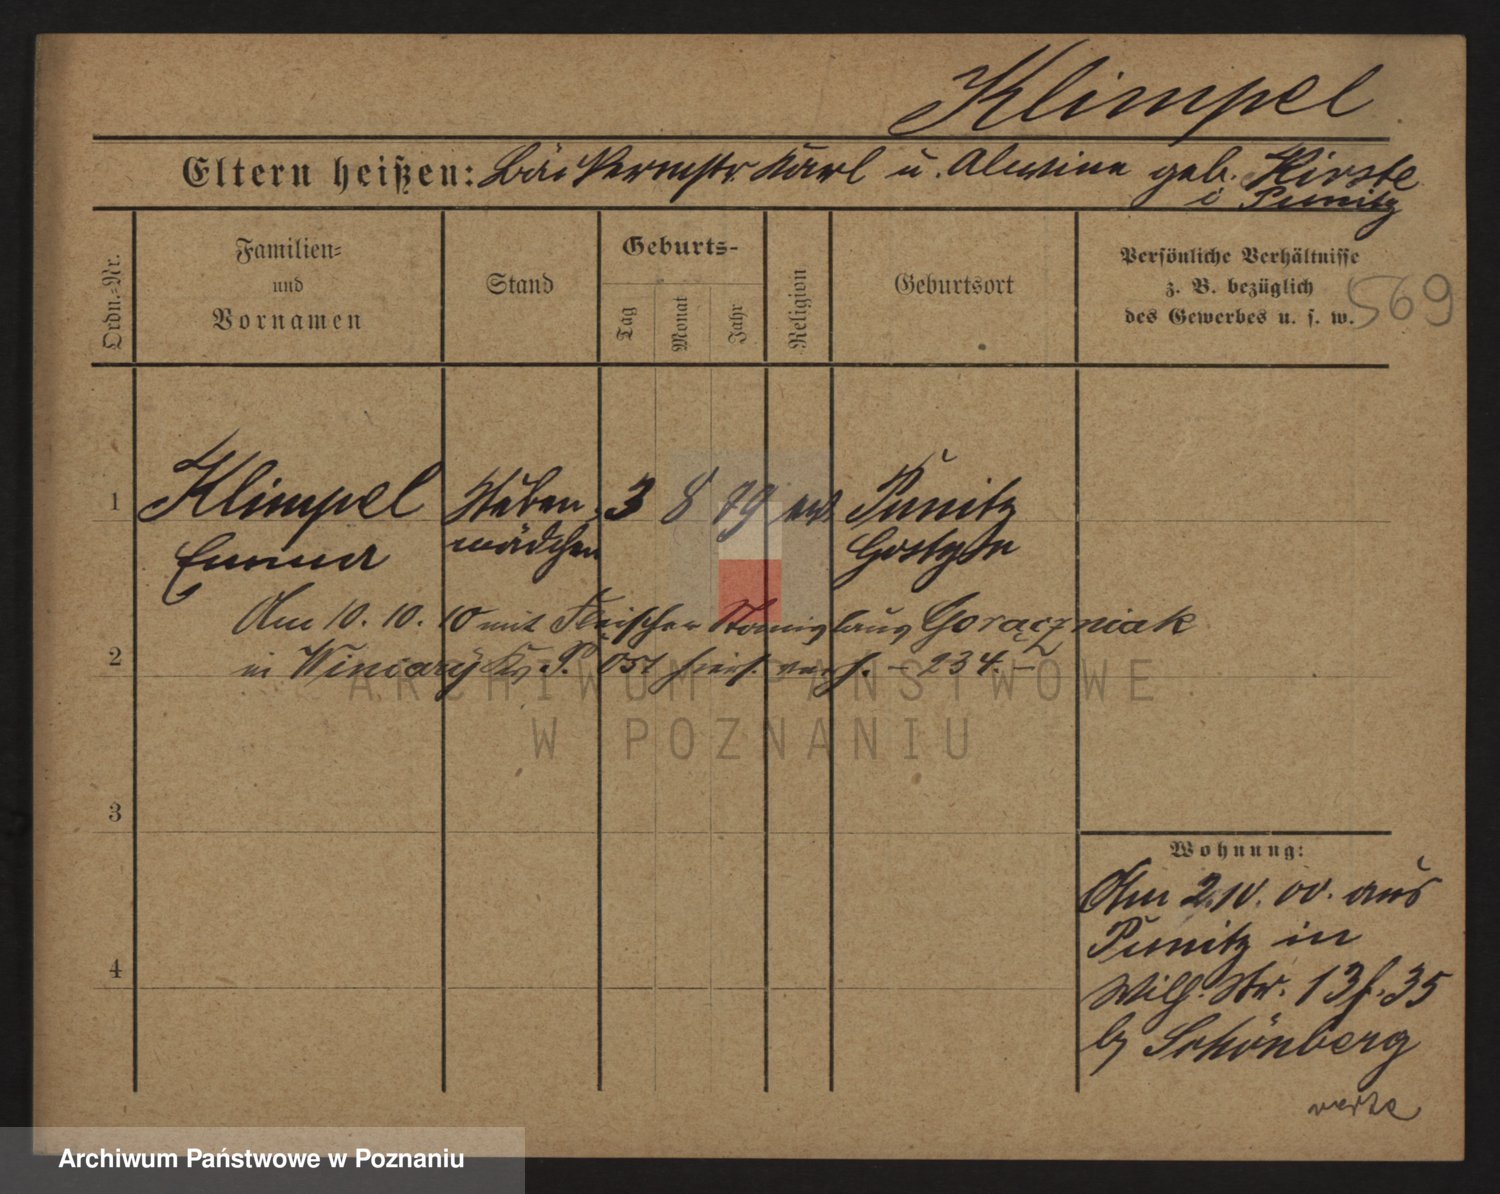 Klimpel
Eltern heißen: Bäckermstr. Karl u. Alwine geb. Hirste
i Punitz
Ordn.-Nr.
Familien-
und
Vornamen
Stand
Geburts-
Tag
Monat
Jahr
Religion
Geburtsort
Persönliche Verhältnisse
z. B. bezüglich
des Gewerbes u. s. w.
569
1
Klimpel Stuben- 3 8 79 ev. Punitz
Emma mädchen Gostyn
Am 10. 10. 10 mit Fleischer Stanislaus Gorączniak
2
in Winiary Kr. P. Ost hier verh. - 234. -
3
Wohnung:
Am 2. 10. 00. aus
Punitz in
4
Wilh. Str. 13 f. 35
by Schönberg
verte
ARCHIWUM PAŃSTWOWE
W POZNANIU
Archiwum Państwowe w Poznaniu